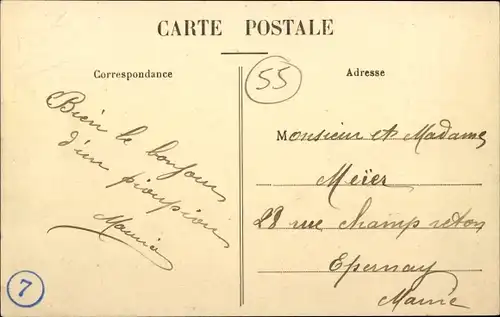 CARTE POSTALE
Correspondance
55
Adresse
Bien le bonjour
d'un pioupiou
Maurice
Monsieur et Madame
Meïer
28 rue Champ reton
Epernay
Marne
7